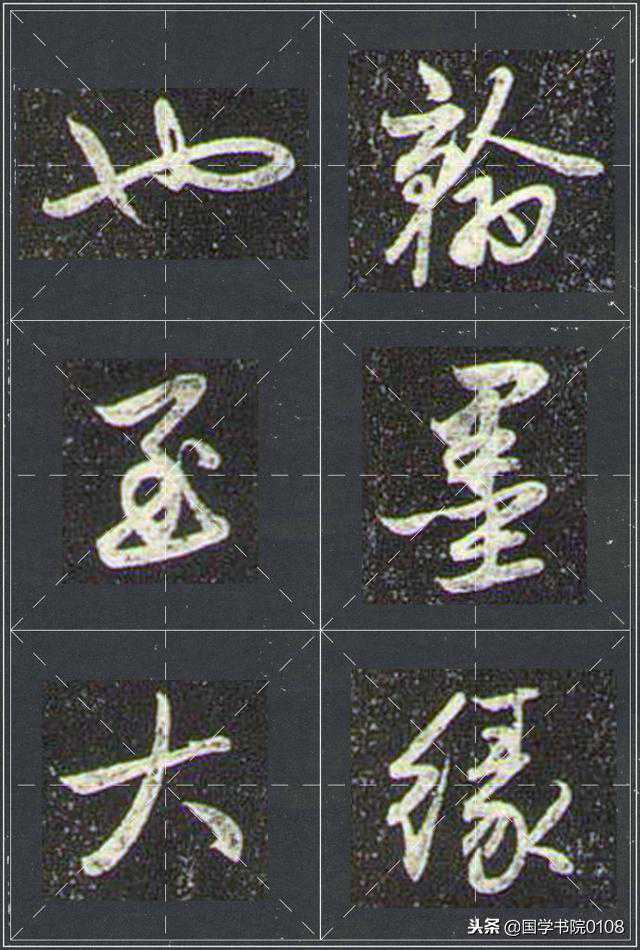 翰墨缘
也至大
头条 @国学书院0108